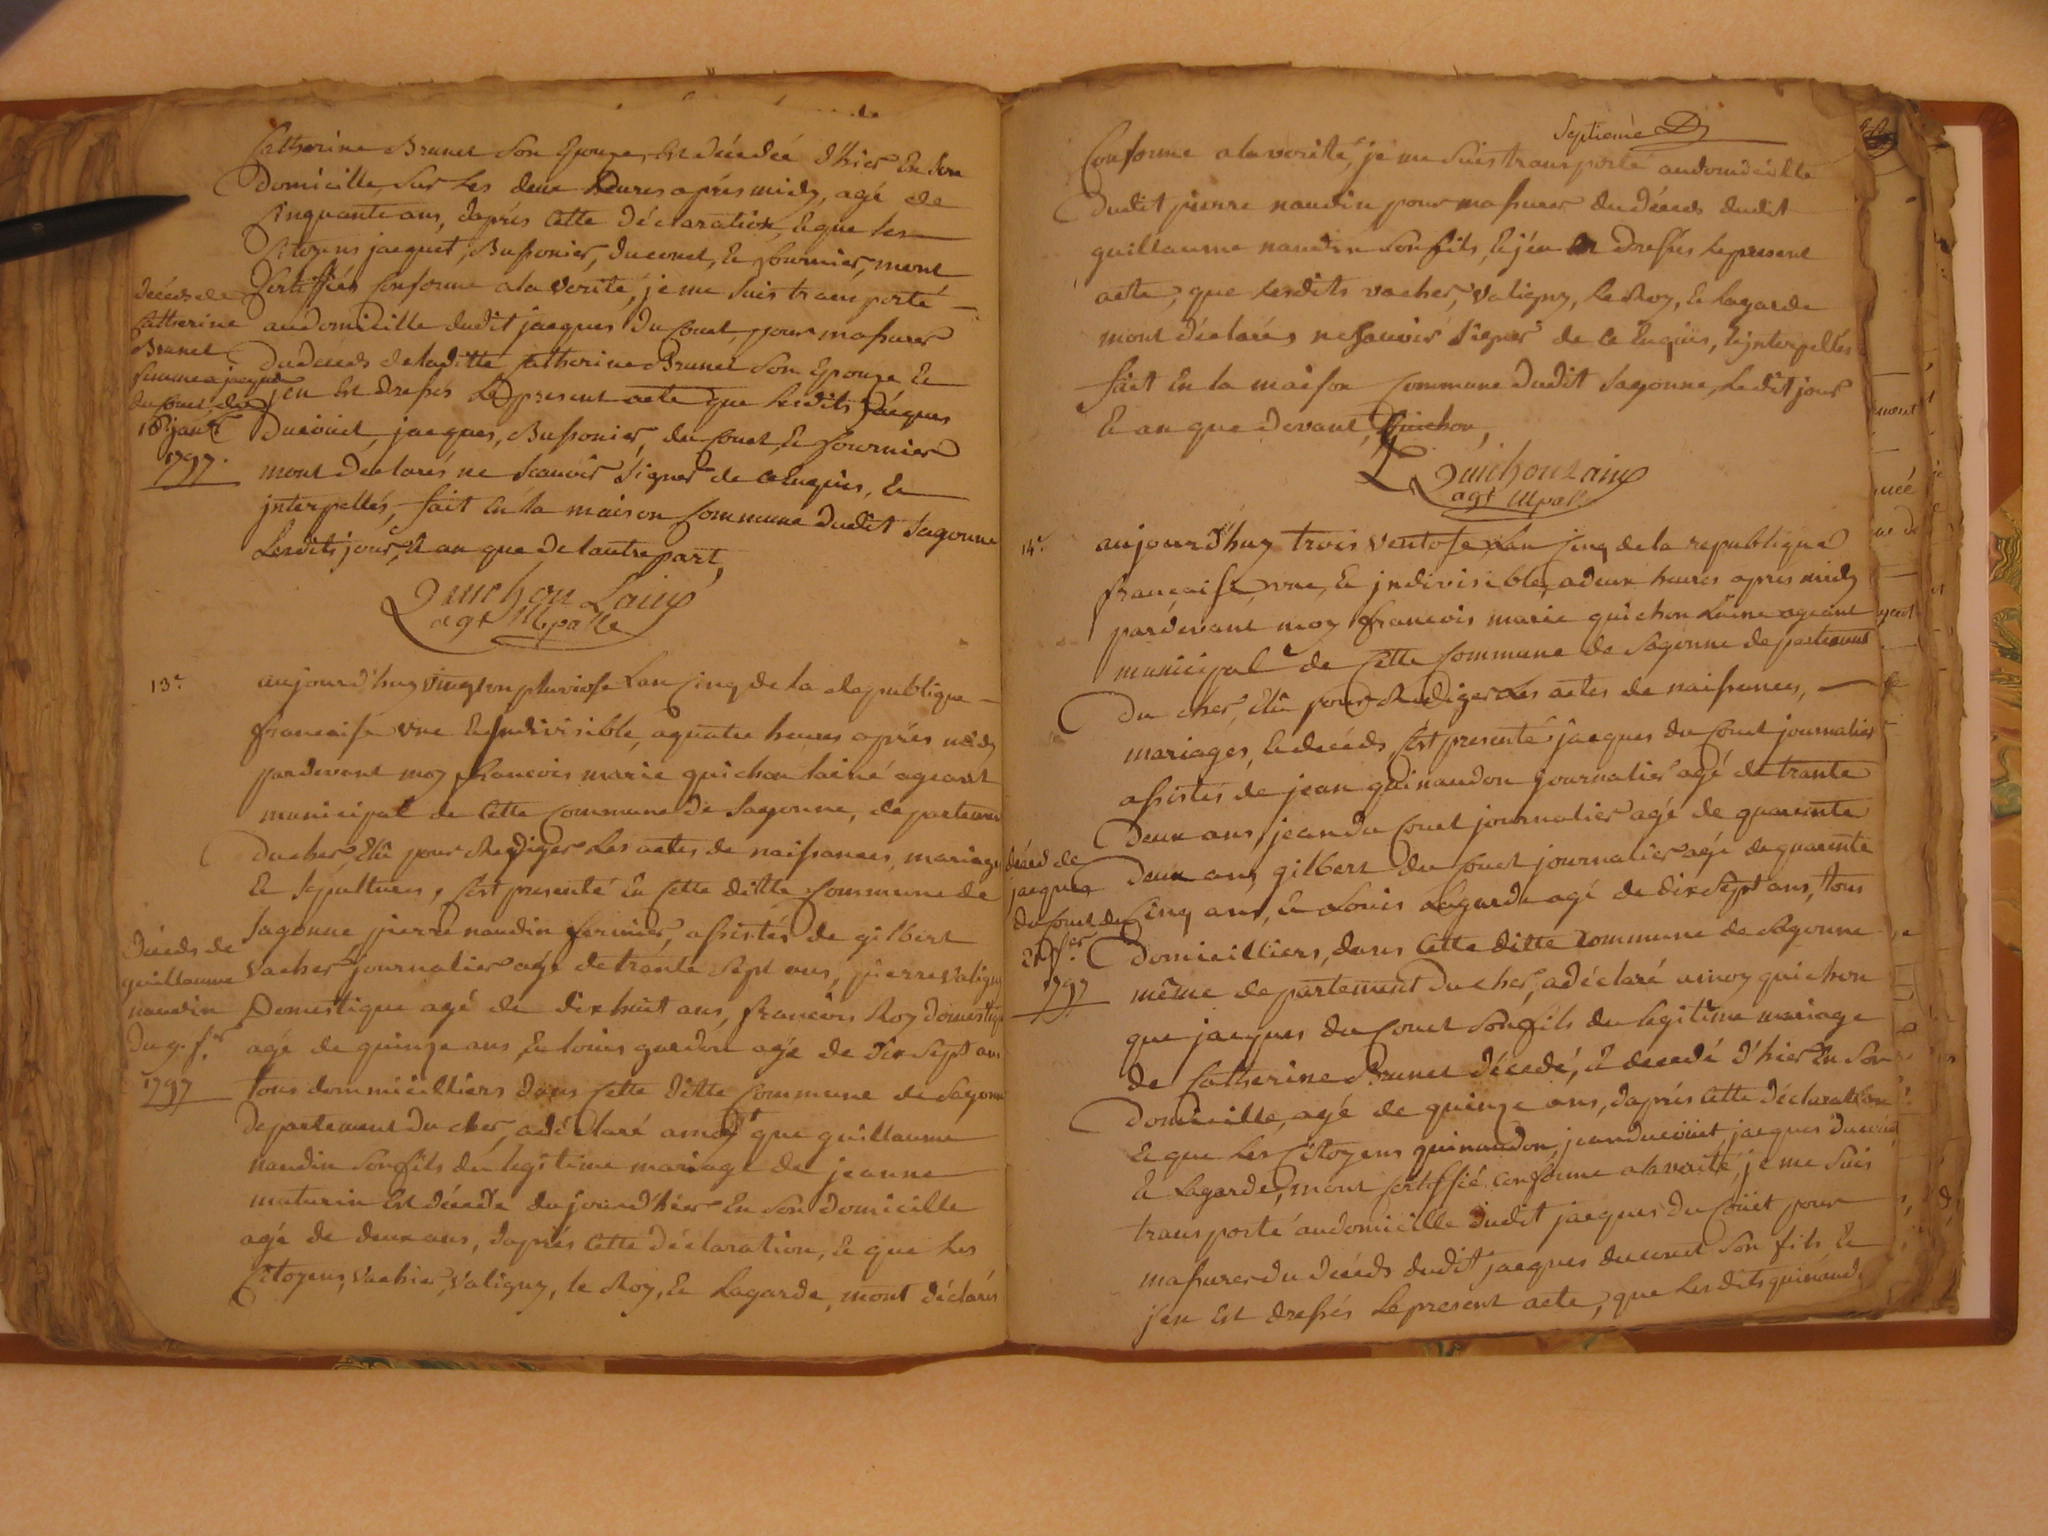 Catherine Brunet Son Epouze, est décédée d'hier En Son
Domicille Sur Les deux heures aprés midy, agé de
Cinquante ans, daprés Cette déclaration, Eque Les
Citoyens jacquet, Bussonier, ducouet, Et fournier, mont
Certiffiés Conforme ala verité, je me Suis transporté
audomicille dudit jacques du Couet, pour massurer
Dudeceds deladitte Catherine Brunet Son Epouze Et
jen Est dressés Le present acte que Lesdits jacques
Ducouet, jacques, Bussonier, du Couet, Et fournier
mont déclarés ne Scauoir Signer de Cenquis, Et
interpellés, fait En la maison Commune dudit Sagonne
Lesdits jour, Et an que de lautre part,
Quichon Lainé
agt Mpalle
décéds de
Catherine
Brunet
femme a jacques
du Couet, du
18 janer
1797.
13e
aujourd'huy vingt un pluviose Lan Cinq de la Republique
francaise vne Et Indivisible, aquatre heures aprés midy
pardevant moy francois marie quichon lainé ageant
municipal de Cette Commune de Sagonne, departement
Ducher Elû pour Rediger Les actes de naissances, mariages
Et Sépultures, Sest presenté En Cette ditte Commune de
Sagonne pierre naudin fermier, assistés de gilbert
vacher journalier agé de trante Sept ans, pierre valigny
Domestique agé de dixhuit ans, francois Roy domestique
agé de quinze ans Et louis gardon agé de dix Sept ans
tous dommicilliers dans Cette ditte Commune de Sagonne
departement du cher, adéclaré amoy que guillaume
naudin Sonfils du legitime mariage de jeanne
maturin Est décédé du jourd'hier En Son domicille
agé de deux ans, daprés Cette déclaration, Et que Les
Citoyens, vacher, valigny, le Roy, Et Lagarde, mont déclarés
Décéds de
guillaume
naudin
du 9. fer
1797
Septieme
Conforme ala verité, je me Suis transporté audomicille
Dudit pierre naudin pour massurer du décéds dudit
guillaume naudin Son fils, Et jen Est dressés Le present
acte, que Lesdits vacher, valigny, Le Roy, Et Lagarde
mont déclarés ne Scauoir Signer de Ce Enquis, Et interpellés
fait En la maison Commune dudit Sagonne Ledit jour
Et an que devant, Quichon,
Quichon Lainé
agt Mpalle
14e
aujourd'huy trois ventose Lan Cinq de la republique
francaise, vne, Et jndivisible, adeux heures aprés midy
pardevant moy francois marie quichon Lainé ageant
municipal de Cette Commune de Sagonne departement
Du cher, Elû pour Rediger Les actes de naissances,
mariages, Et décéds, Sest presenté jacques du Couet journalier
assistés de jean quinaudon journalier agé de trante
Deux ans, jean du Couet journalier agé de quarente
Deux ans gilbert du Couet journalier agé dequarente
Cinq ans, Et Louis Lagarde agé de dix Sept ans, tous
Domicilliers, dans Cette ditte Commune de Sagonne
même departement du cher, adéclaré amoy quichon
que jacques du Couet Son fils du legitime mariage
de Catherine Brunet décédé, Est decedé d'hier En Son
Domicille, agé de quinze ans, daprés Cette déclaration
Et que Les Citoyens quinaudon, jean ducouet, jacques ducouet
Et Lagarde, mont Certiffié Conforme ala verité, je me Suis
transporté audomicille dudit jacques du Couet pour
massurer du décéds dudit jacques ducouet Son fils Et
jen Est dressés Le present acte, que Lesdits quinaud
décéd de
jacques
du Couet du
21 fer
1797